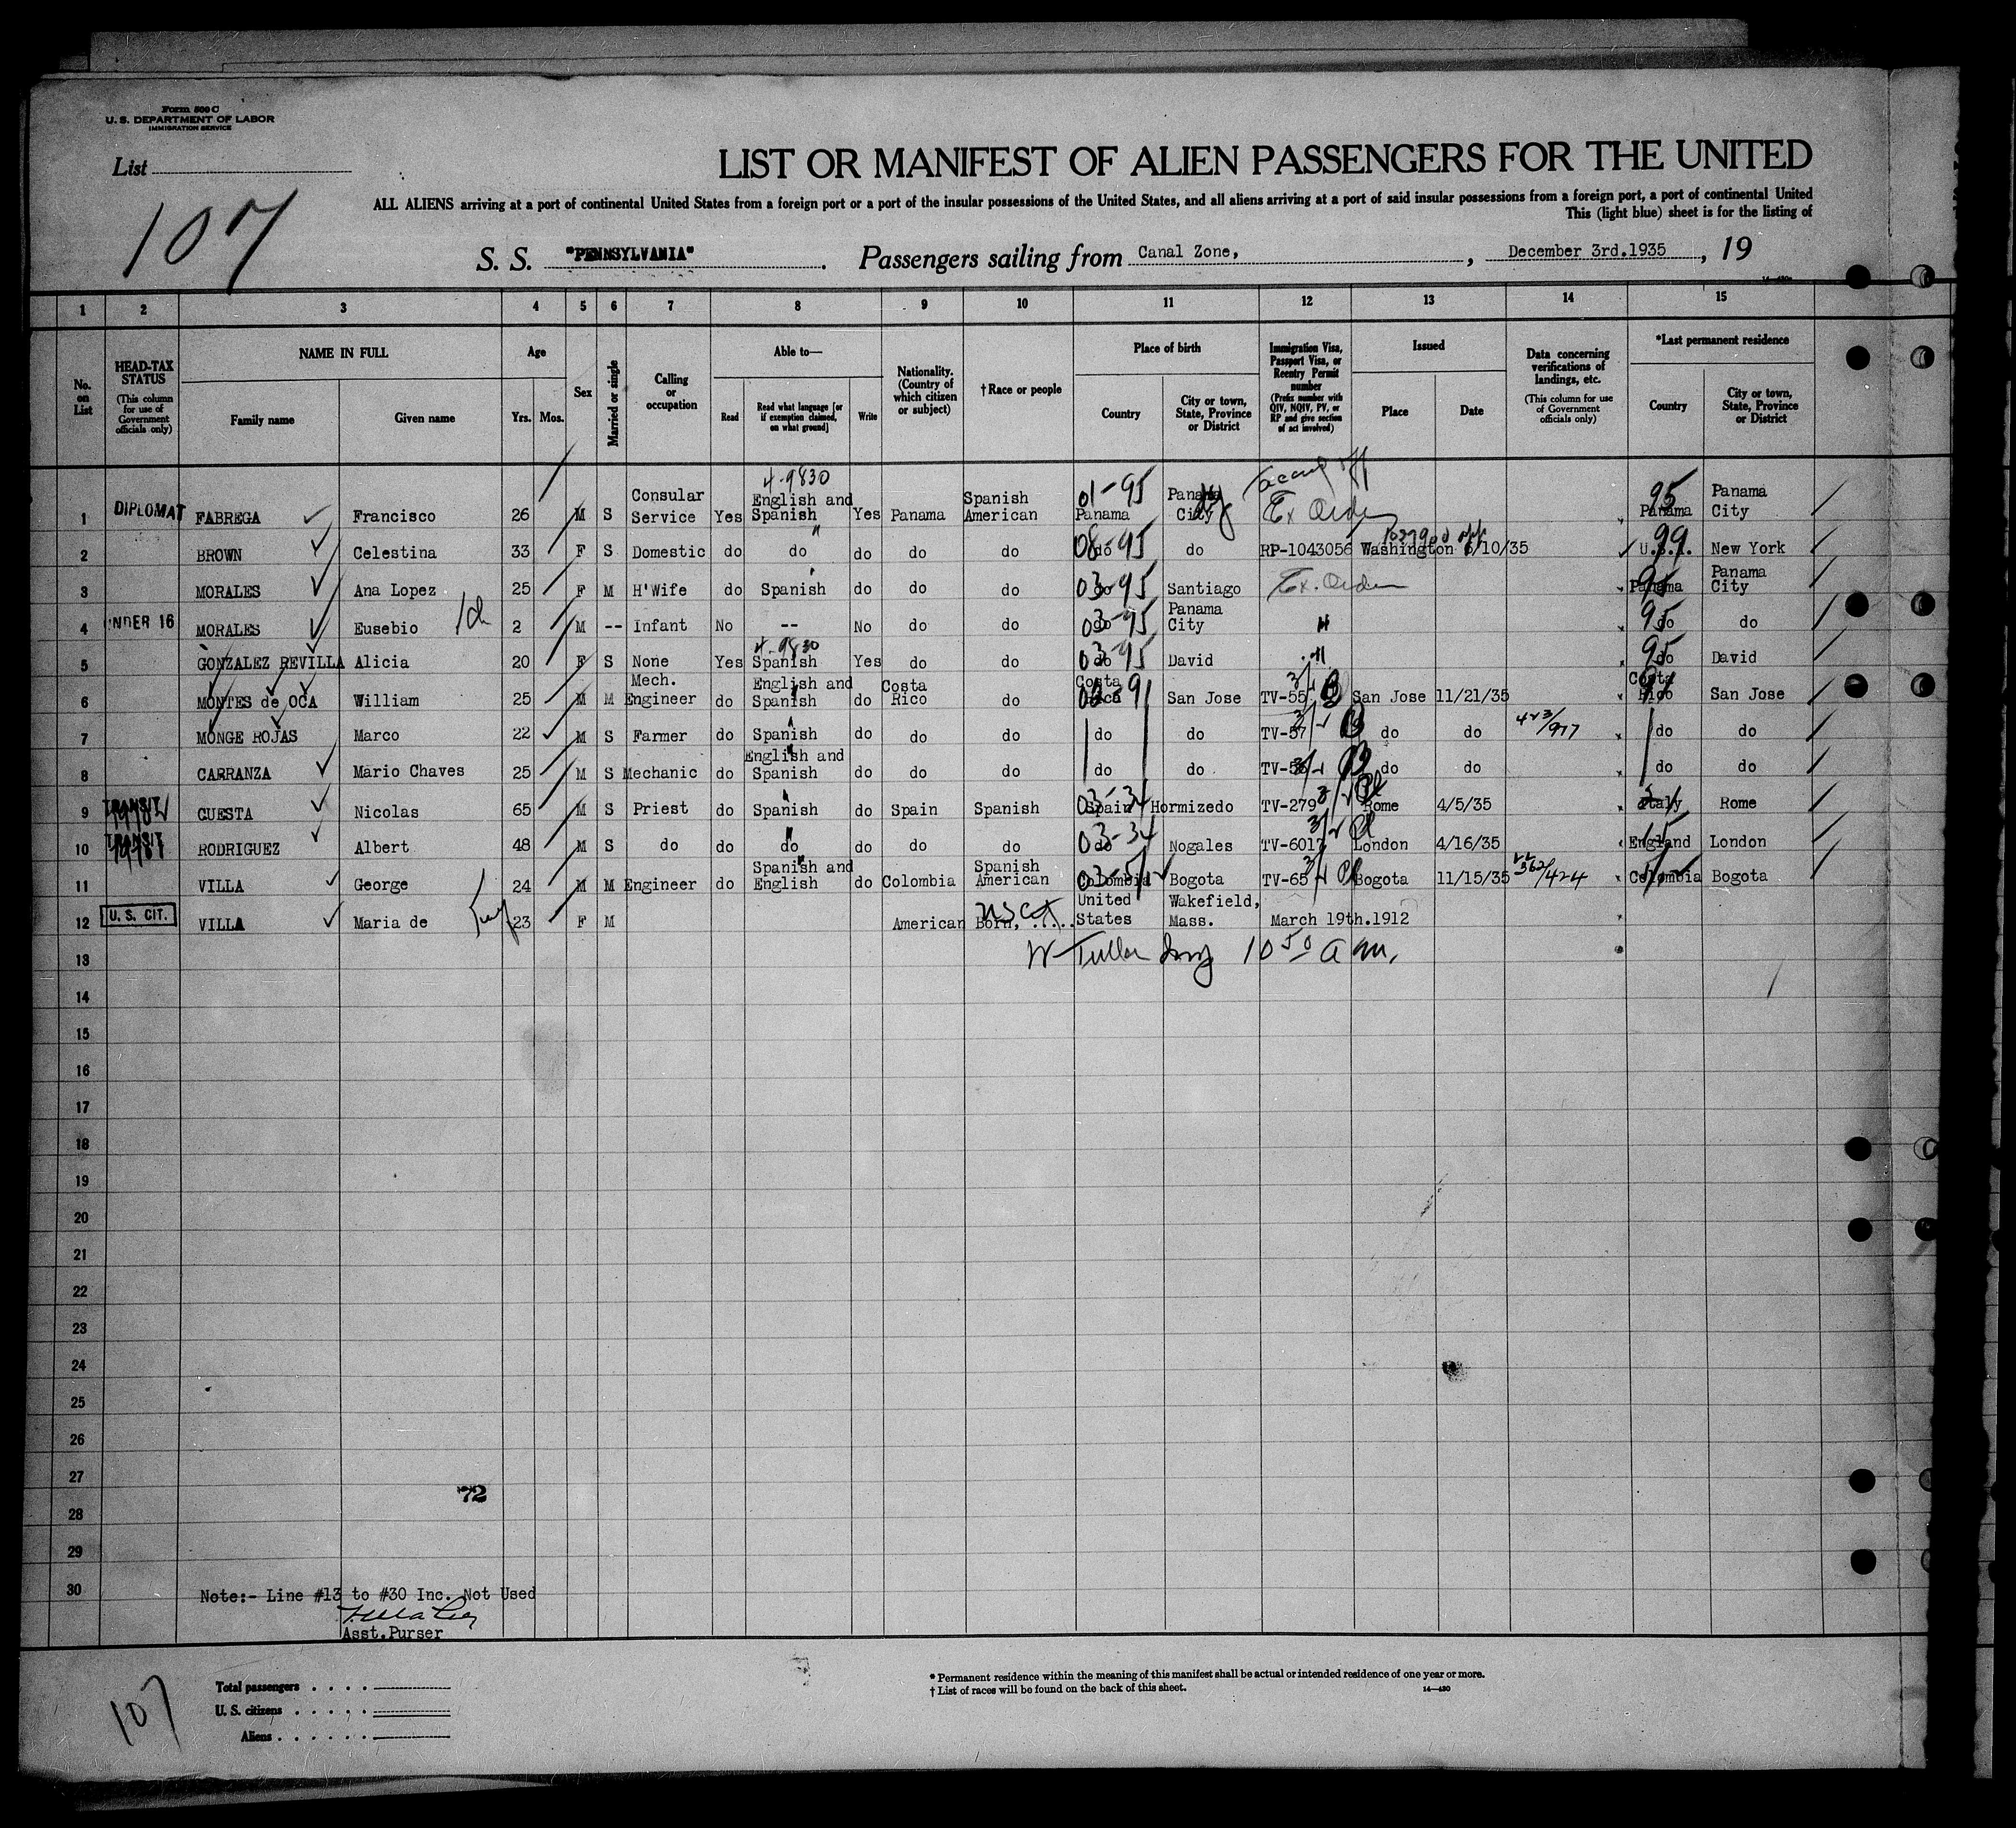 Form 500 C
U. S. DEPARTMENT OF LABOR
IMMIGRATION SERVICE
List
107
LIST OR MANIFEST OF ALIEN PASSENGERS FOR THE UNITED
ALL ALIENS arriving at a port of continental United States from a foreign port or a port of the insular possessions of the United States, and all aliens arriving at a port of said insular possessions from a foreign port, a port of continental United
This (light blue) sheet is for the listing of
S. S. "PENNSYLVANIA" . Passengers sailing from Canal Zone, , December 3rd.1935 , 19
1 2 3 4 5 6 7 8 9 10 11 12 13 14 15
No. on List
HEAD-TAX STATUS (This column for use of Government officials only)
NAME IN FULL Family name Given name
Age Yrs. Mos.
Sex
Married or single
Calling or occupation
Able to— Read Read what language [or if exemption claimed, on what ground] Write
Nationality. (Country of which citizen or subject)
†Race or people
Place of birth Country City or town, State, Province or District
Immigration Visa, Passport Visa, or Reentry Permit number (Prefix number with QIV, NQIV, PV, or RP and give section of act involved)
Issued Place Date
Data concerning verifications of landings, etc. (This column for use of Government officials only)
*Last permanent residence Country City or town, State, Province or District
4-9830
1 DIPLOMAT FABREGA Francisco 26 M S Consular Service Yes English and Spanish Yes Panama Spanish American 01-95 Panama Panama City Ex Order 95 Panama Panama City
2 BROWN Celestina 33 F S Domestic do do do do do 08-95 do do RP-1043056 Washington 6/10/35 99 U.S.A. New York
3 MORALES Ana Lopez 25 F M H'Wife do Spanish do do do 03-95 do Santiago Ex. Order 95 Panama Panama City
4 UNDER 16 MORALES Eusebio 2 M -- Infant No -- No do do 03-95 do Panama City " 95 do do
4-9830
5 GONZALEZ REVILLA Alicia 20 F S None Yes Spanish Yes do do 03-95 do David " 95 do David
6 MONTES de OCA William 25 M M Mech. Engineer do English and Spanish do Costa Rico do Costa Rica San Jose TV-55 San Jose 11/21/35 Costa Rico San Jose
7 MONGE ROJAS Marco 22 M S Farmer do Spanish do do do do do TV-57 do do 423/977 do do
8 CARRANZA Mario Chaves 25 M S Mechanic do English and Spanish do do do do do TV-56 do do do do
9 TRANSIT CUESTA Nicolas 65 M S Priest do Spanish do Spain Spanish 03-34 Spain Hormizedo TV-279 Rome 4/5/35 Italy Rome
10 TRANSIT RODRIGUEZ Albert 48 M S do do do do do do 03-34 do Nogales TV-6017 London 4/16/35 England London
11 VILLA George 24 M M Engineer do Spanish and English do Colombia Spanish American Colombia Bogota TV-65 Bogota 11/15/35 Colombia Bogota
12 U. S. CIT. VILLA Maria de 23 F M American Born, United States Wakefield, Mass. March 19th.1912
13 10 50 a m.
14
15
16
17
18
19
20
21
22
23
24
25
26
27
72
28
29
30
Note:- Line #13 to #30 Inc. Not Used
Asst.Purser
107
Total passengers
U. S. citizens
Aliens
* Permanent residence within the meaning of this manifest shall be actual or intended residence of one year or more.
† List of races will be found on the back of this sheet.
14—430